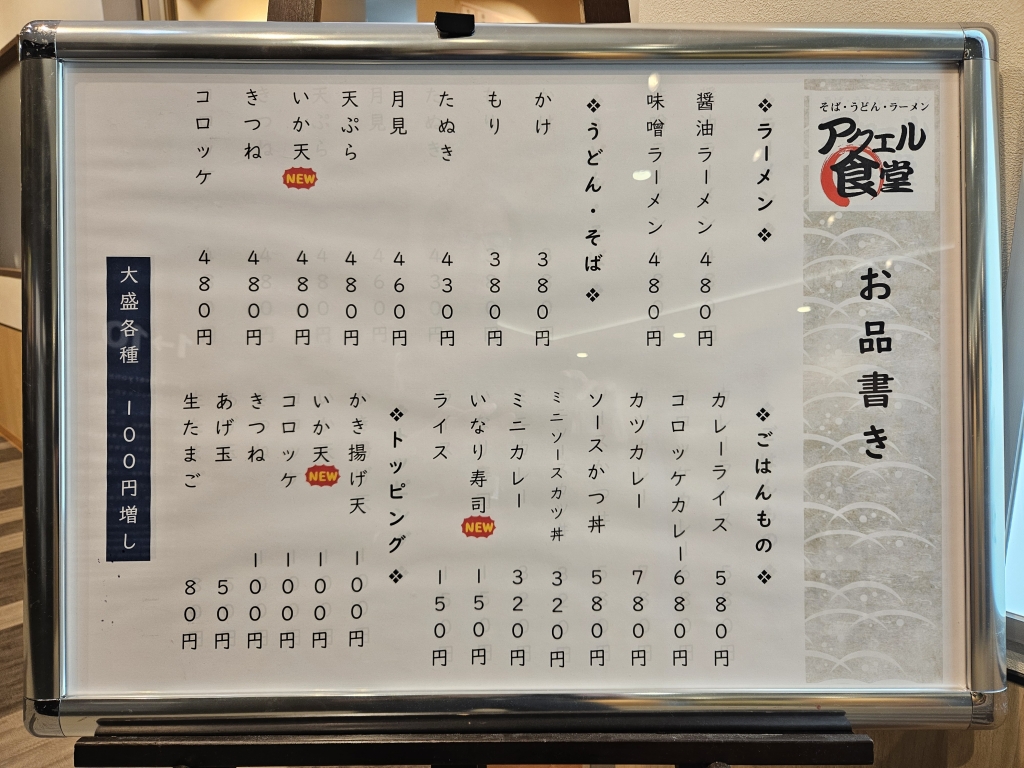 そば・うどん・ラーメン
アクエル
食堂
お品書き
❖ラーメン❖
醤油ラーメン 480円
味噌ラーメン 480円
❖うどん・そば❖
かけ 380円
もり 380円
たぬき 430円
月見 460円
天ぷら 480円
いか天 NEW 480円
きつね 480円
コロッケ 480円
❖ごはんもの❖
カレーライス 580円
コロッケカレー 680円
カツカレー 780円
ソースかつ丼 580円
ミニソースカツ丼 320円
ミニカレー 320円
いなり寿司 NEW 150円
ライス 150円
❖トッピング❖
かき揚げ天 100円
いか天 NEW 100円
コロッケ 100円
きつね 100円
あげ玉 50円
生たまご 80円
大盛各種 100円増し